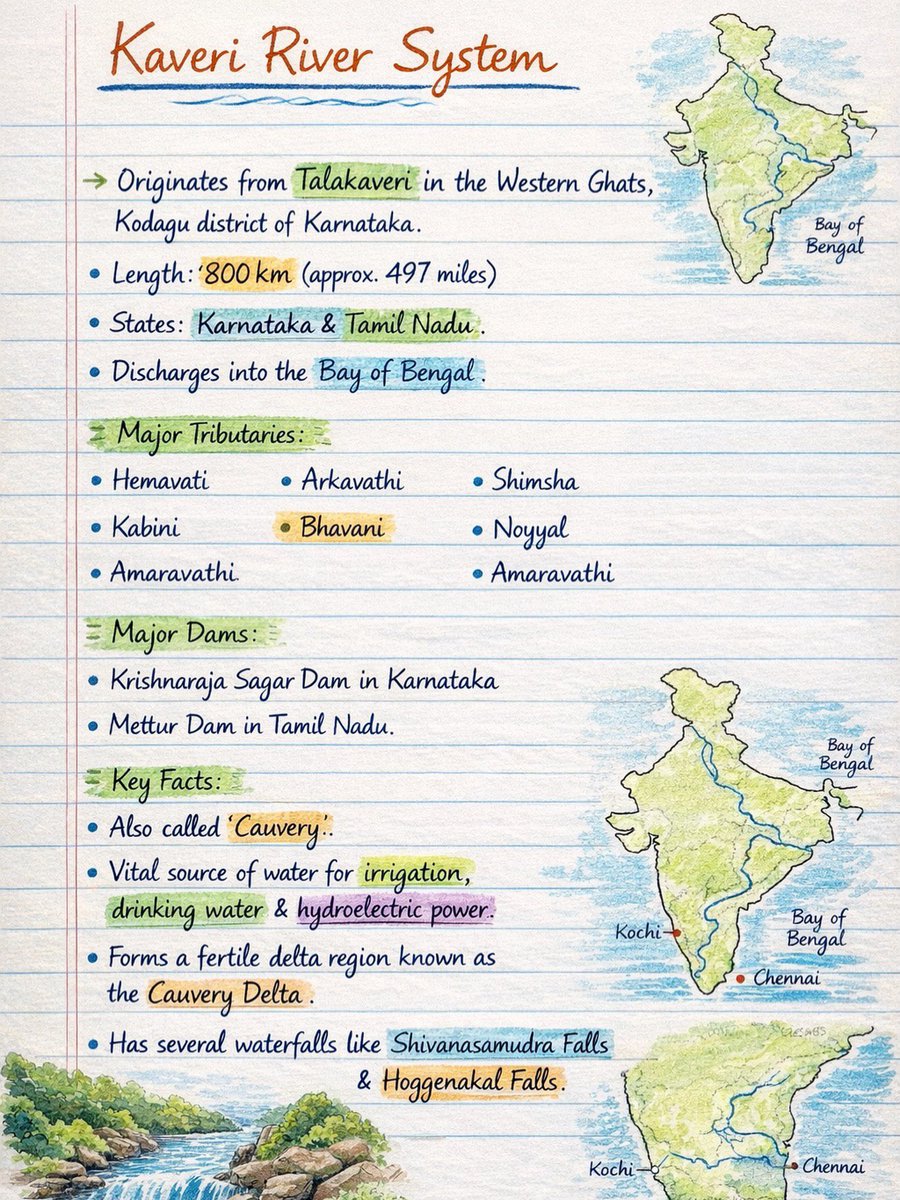 Kaveri River System
Bay of
Bengal
→ Originates from Talakaveri in the Western Ghats,
Kodagu district of Karnataka.
• Length: '800 km (approx. 497 miles)
• States: Karnataka & Tamil Nadu.
• Discharges into the Bay of Bengal.
Major Tributaries:
• Hemavati • Arkavathi • Shimsha
• Kabini • Bhavani • Noyyal
• Amaravathi. • Amaravathi
Major Dams:
• Krishnaraja Sagar Dam in Karnataka
• Mettur Dam in Tamil Nadu.
Key Facts:
• Also called 'Cauvery'.
• Vital source of water for irrigation,
drinking water & hydroelectric power.
• Forms a fertile delta region known as
the Cauvery Delta.
• Has several waterfalls like Shivanasamudra Falls
& Hoggenakal Falls.
Bay of
Bengal
Kochi
Bay of
Bengal
Chennai
Kochi
Chennai